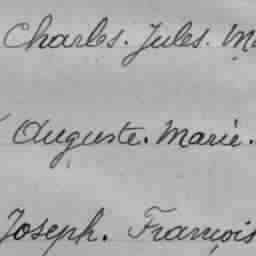 Charles. Jules. M
Auguste. Marie.
Joseph. François